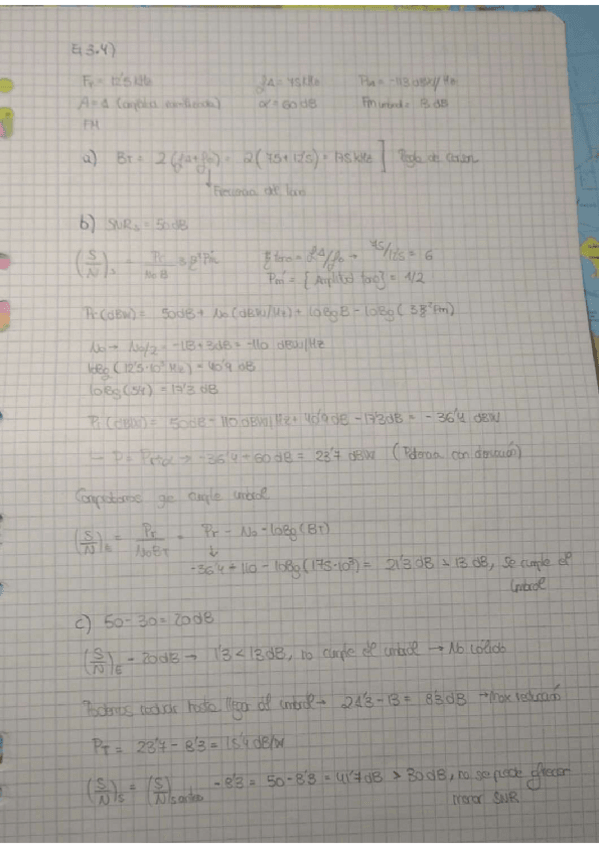 Ej 3.4)
A=1 (amplitud normalizada) α=60 dB
FM
a) BT = 2(f∆+fm) = 2(75+12'5) = 175 kHz ] Regla de Carson
b) SNRs = 50 dB
(S/N)s = Pr/NoB 3β²Pm β tono = f∆/fo → 75/12'5 = 6
Pm = [Amplitud tono] = 1/2
Pr(dBW) = 50dB + No (dBW/Hz) + 10logB - 10log(3β²Pm)
No → No/2 = -113+3dB = -110 dBW/Hz
10log(12'5·10³Hz) = 40'9 dB
10log(54) = 17'3 dB
Pr(dBW) = 50dB - 110 dBW/Hz + 40'9 dB - 17'3dB = -36'4 dBW
P = → -36'4 - 60 dB = 23'7 dBW (Potencia con atenuación)
Comprobamos que cumple umbral
(S/N)E = Pr/NoBT = Pr - No - 10log(BT)
-36'4 + 110 - 10log(175·10³) = 21'3 dB > 13 dB, se cumple el
umbral
c) 50-30 = 20dB
(S/N)E - 20dB → 1'3 < 13 dB, no cumple el umbral → No válido
Podemos reducir hasta llegar al umbral → 21'3 - 13 = 8'3 dB → Max reducción
PT = 23'7 - 8'3 = 15'4 dBW
(S/N)s = (S/N)s - 8'3 = 50 - 8'3 = 41'7 dB > 30 dB, no se puede ofrecer
menor SNR